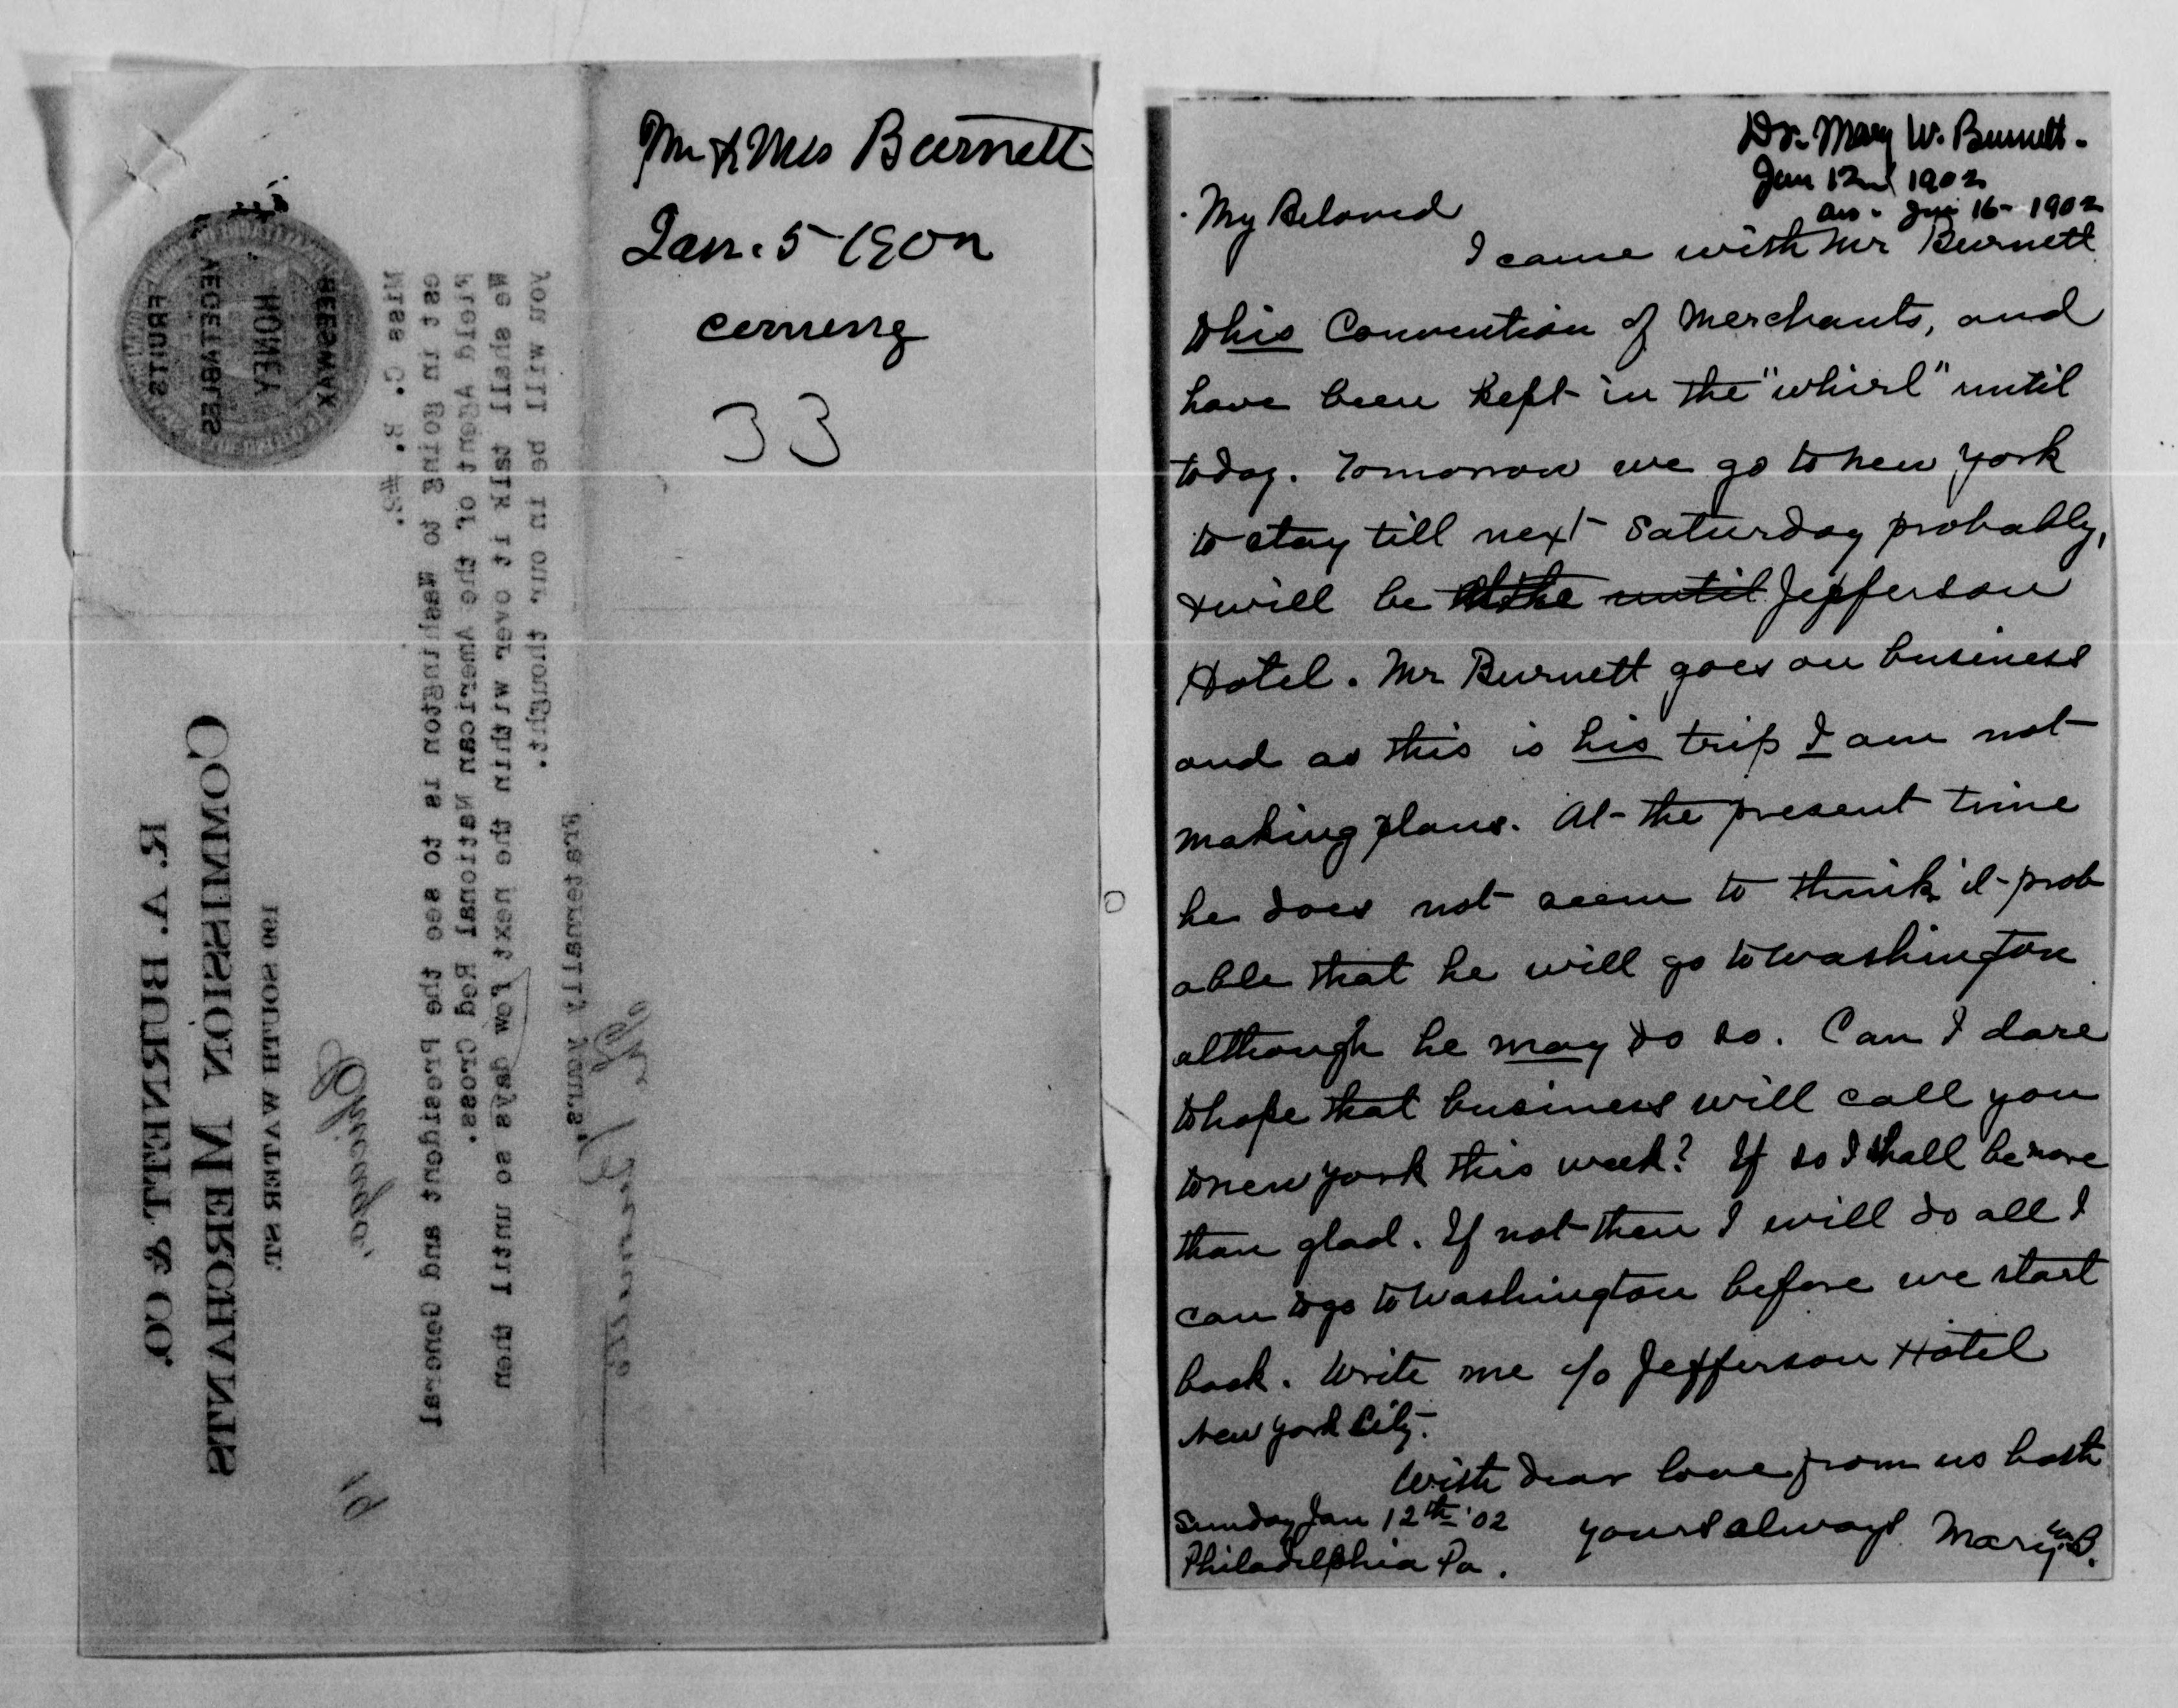 Mr & Mrs Burnett
Jan. 5 1902
coming
33
R. A. BURNETT & CO.
COMMISSION MERCHANTS
199 SOUTH WATER ST.
Chicago,
FRUITS
VEGETABLES
HONEY
BEESWAX
Miss C. B. #2.
est in going to Washington is to see the President and General
Field Agent of the American National Red Cross.
We shall talk it over within the next few days so until then
you will be in our thought.
Fraternally yours,
Dr. Mary W. Burnett.
Jan 12nd 1902
ans. Jan 16 - 1902
My Beloved
I came with Mr Burnett
to his Convention of Merchants, and
have been kept in the "whirl" until
today. Tomorrow we go to New York
to stay till next Saturday probably,
& will be until Jefferson
Hotel. Mr Burnett goes on business
and as this is his trip I am not
making plans. At the present time
he does not seem to think it prob
able that he will go to Washington
although he may do so. Can I dare
to hope that business will call you
to New York this week? If so I shall be more
than glad. If not then I will do all I
can to go to Washington before we start
back. Write me c/o Jefferson Hotel
New York City.
With dear love from us both
Yours always Mary W. B.
Sunday Jan 12th '02
Philadelphia Pa.